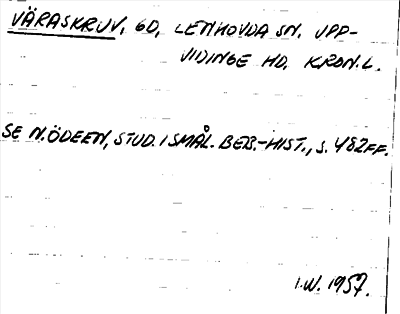 VÄRASKRUV, GD, LENHOVDA SN. UPP-
VIDINGE HD. KRON.L.
SE N.ÖDEEN, STUD. I SMÅL. BEB.-HIST., S. 482FF.
I.W. 1957.